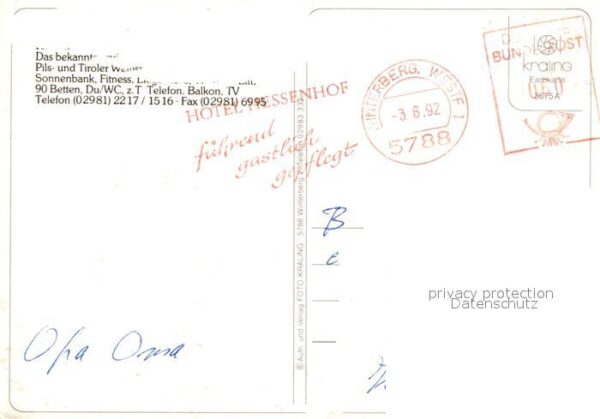 Das bekannte
Pils- und Tiroler
Sonnenbank, Fitness.
90 Betten, Du/WC, z.T Telefon. Balkon, TV
Telefon (02981) 2217 / 1516 · Fax (02981) 6995
HOTEL HESSENHOF
führend
gastlich
gepflegt
WINTERBERG, WESTF 1
-3.6.92
5788
BUNDESPOST
kraling
Farbkarte
8675A
© Aufn. und Verlag FOTO-KRALING 5788 Winterberg Telefon 02983
B
e
privacy protection
Datenschutz
Opa Oma